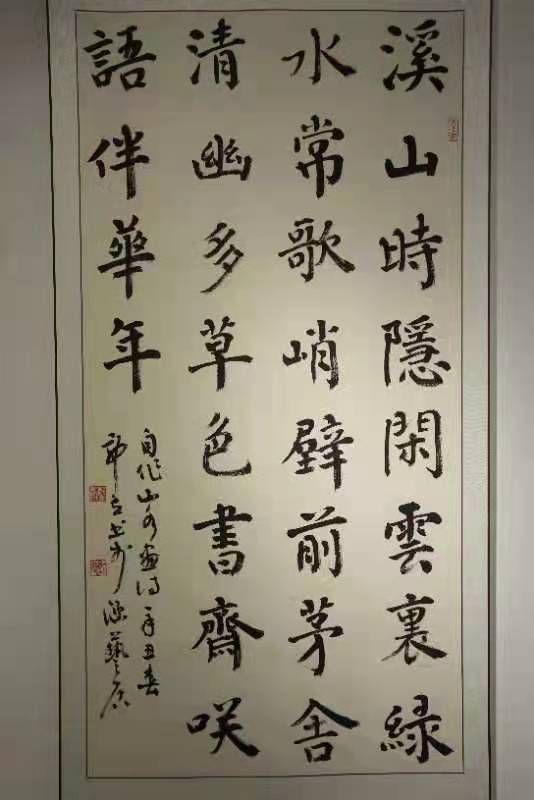 溪山時隱閑雲裏緑
水常歌峭壁前茅舍
清幽多草色書齋咲
語伴華年
自作山水畫詩辛丑春
書於藝